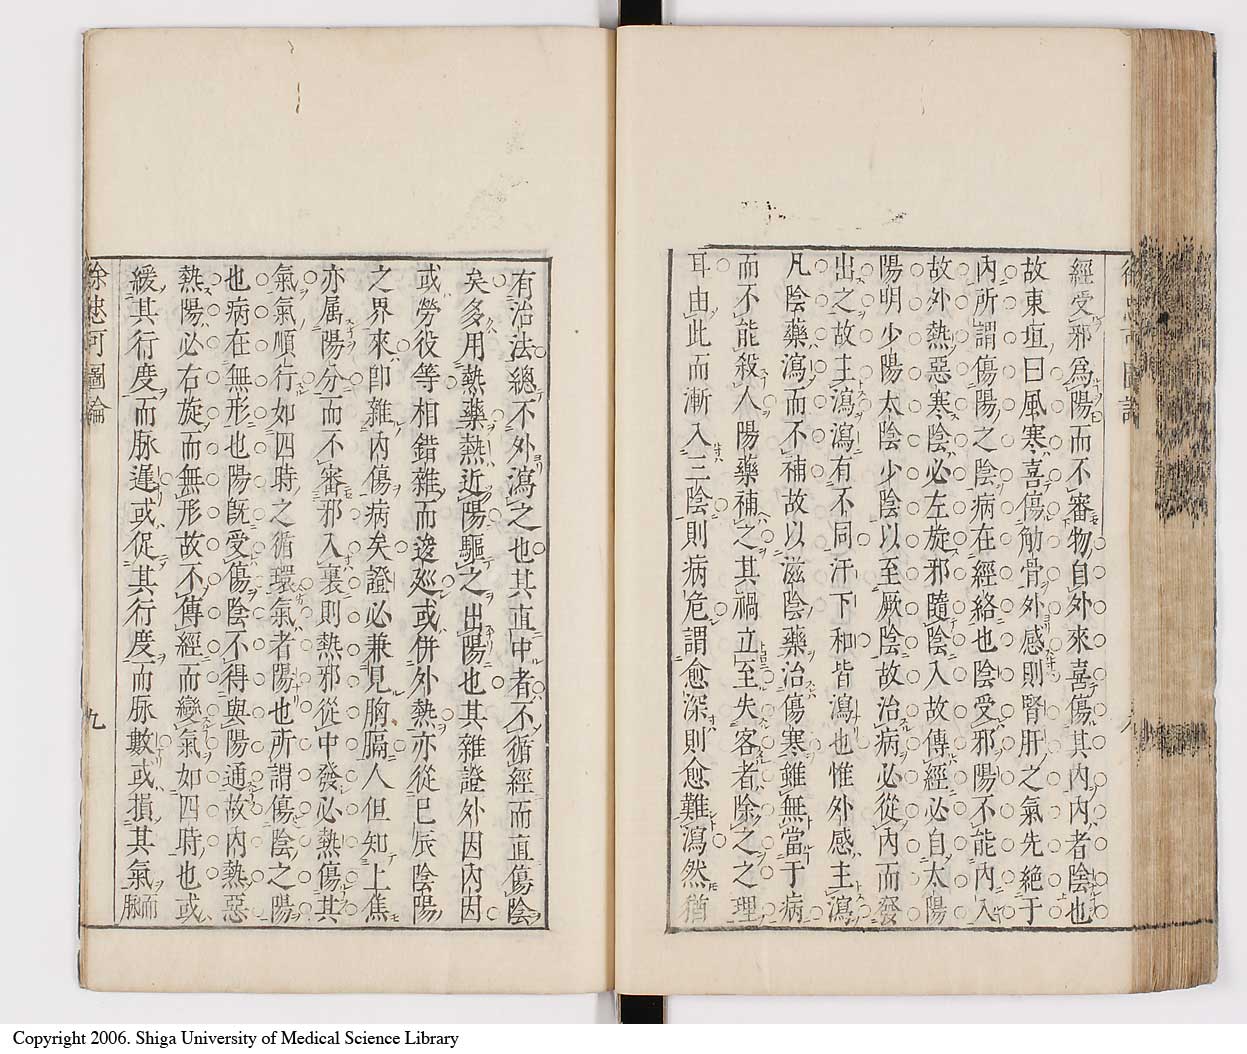 經受邪爲陽而不審物自外來喜傷其內內者陰也
故東垣曰風寒喜傷觔骨外感則腎肝之氣先絕于
內所謂傷陽之陰病在經絡也陰受邪陽不能內入
故外熱惡寒陰必左旋邪隨陰入故傳經必自太陽
陽明少陽太陰少陰以至厥陰故治病必從內而發
出之故主瀉瀉有不同汗下和皆瀉也惟外感主瀉
凡陰藥瀉而不補故以滋陰藥治傷寒雖無當于病
而不能殺人陽藥補之其禍立至失客者除之之理
耳由此而漸入三陰則病危謂愈深則愈難瀉然猶
有治法總不外瀉之也其直中者不循經而直傷陰
矣多用熱藥熱近陽驅之出陽也其雜證外因內因
或勞役等相錯雜而逡廵或併外熱亦從巳辰陰陽
之界來卽雜內傷病矣證必兼見胸膈人但知上焦
亦属陽分而不審邪入裏則熱邪從中發必熱傷其
氣氣順行如四時之循環氣者陽也所謂傷陰之陽
也病在無形也陽旣受傷陰不得與陽通故內熱惡
熱陽必右旋而無形故不傳經而變氣如四時也或
緩其行度而脉遲或促其行度而脉數或損其氣而脉
徐忠可圖論
九
Copyright 2006. Shiga University of Medical Science Library